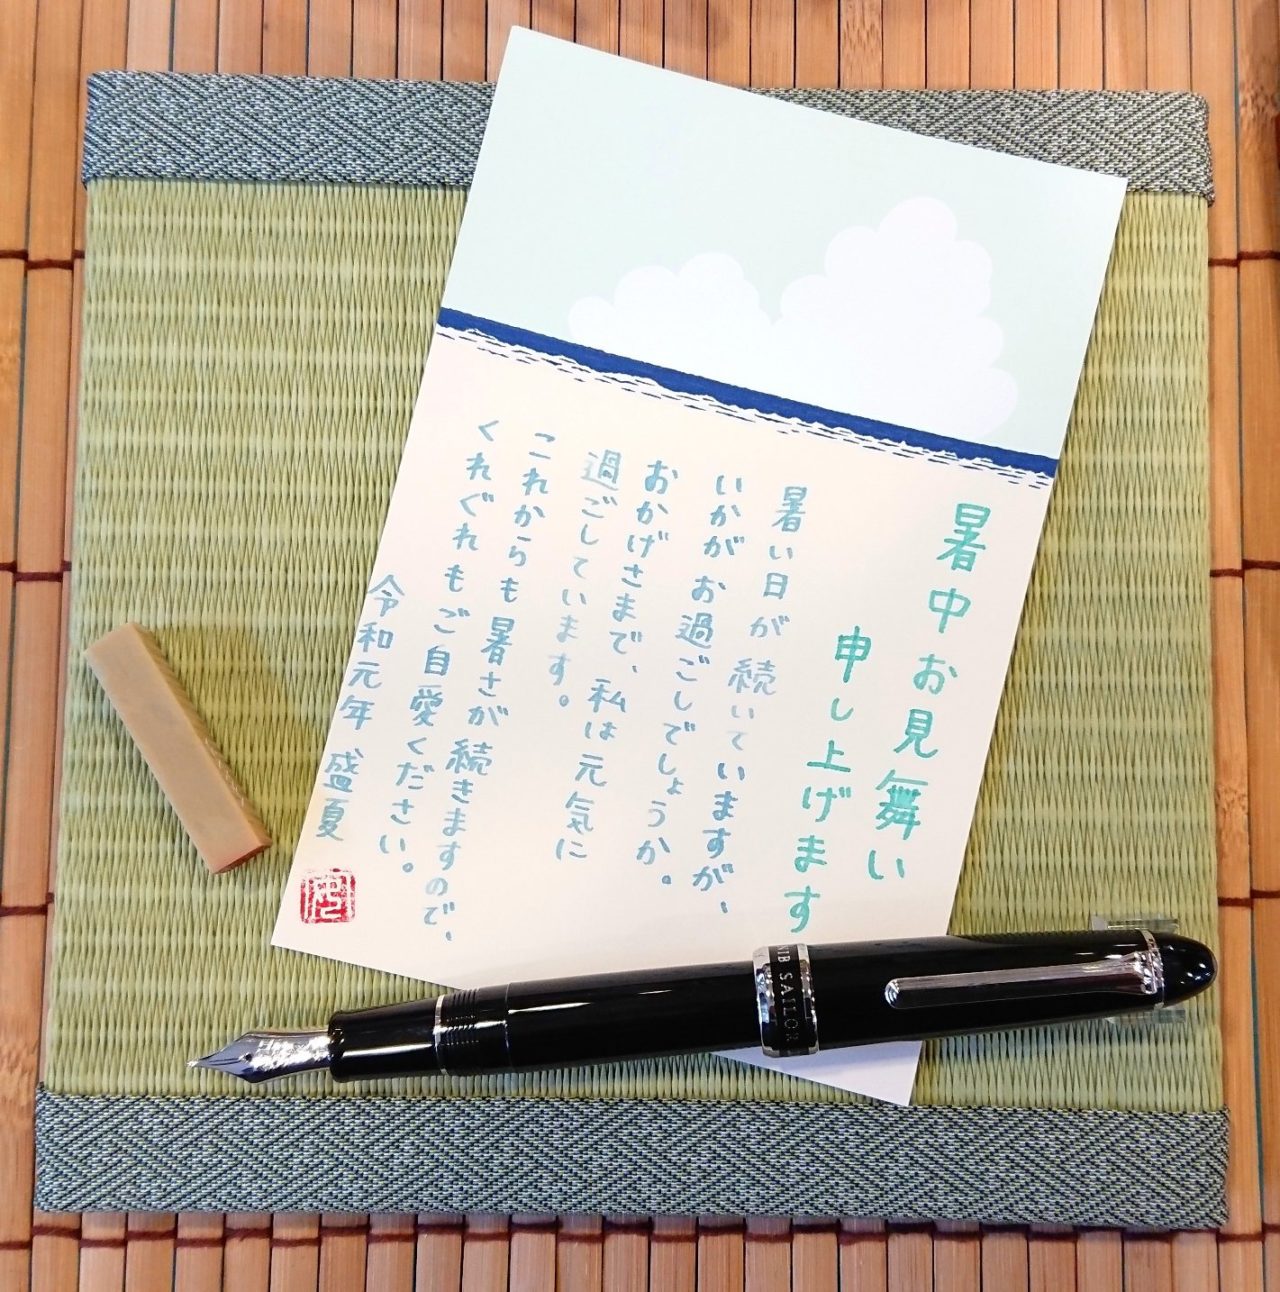 暑中お見舞い
申し上げます
暑い日が続いていますが、
いかがお過ごしでしょうか。
おかげさまで、私は元気に
過ごしています。
これからも暑さが続きますので、
くれぐれもご自愛ください。
令和元年 盛夏
NIB SAILOR